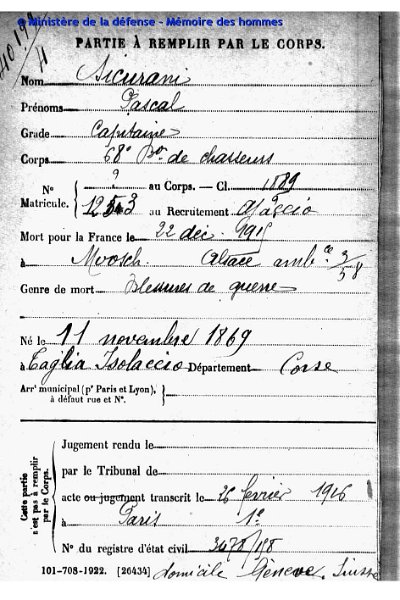 © Ministère de la défense - Mémoire des hommes
PARTIE À REMPLIR PAR LE CORPS.
Nom Sicurani
Prénoms Pascal
Grade Capitaine
Corps 68e Bon de chasseurs
N° Matricule. { ? au Corps. — Cl. 1889
au Recrutement Ajaccio
Mort pour la France le 22 déc. 1915
à Moosch Alsace ambce 3/58
Genre de mort Blessures de guerre
Né le 11 novembre 1869
à Taglio Isolaccio Département Corse
Arrt municipal (pr Paris et Lyon), à défaut rue et N°. }
Cette partie n'est pas à remplir par le Corps.
Jugement rendu le
par le Tribunal de
acte ou jugement transcrit le 26 février 1916
à Paris 1e
N° du registre d'état civil
101-708-1922. [26434] domicile Genève. Suisse